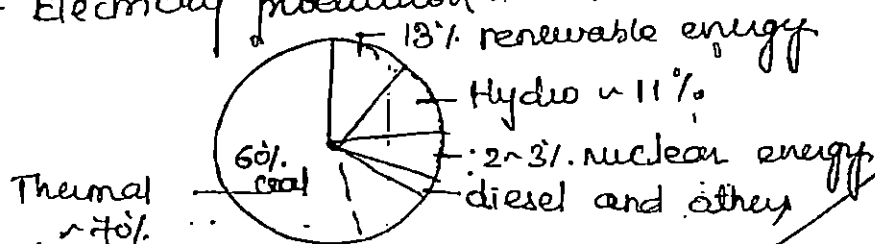 Electricity production
13% renewable energy
Hydro ~ 11%
60%
coal
2~3% nuclear energy
diesel and others
Thermal
~70%